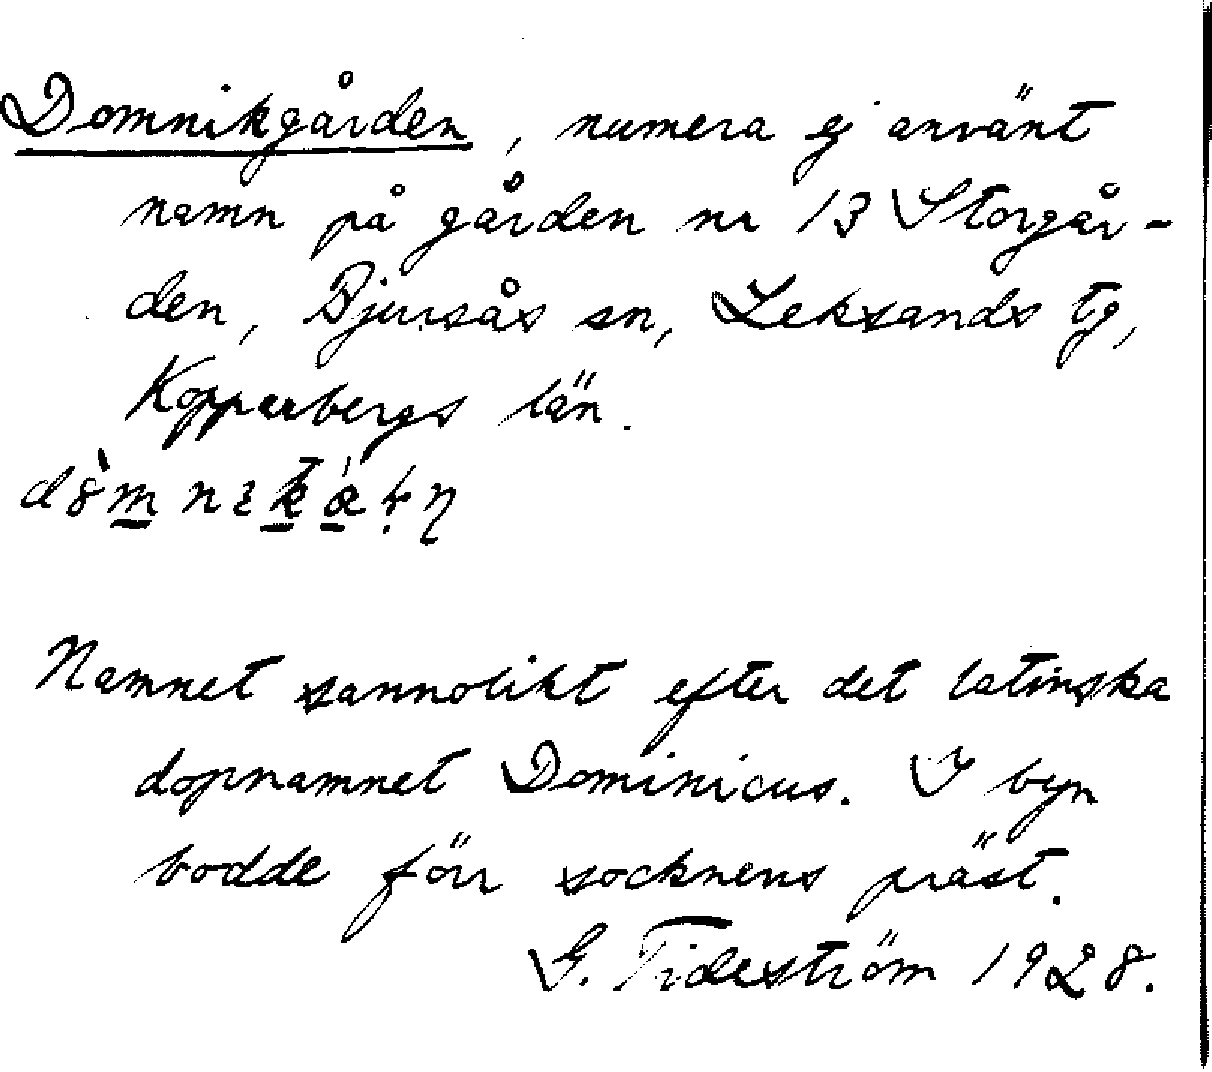 Domnikgården, numera ej använt
namn på gården nr 13 Storgår-
den, Bjursås sn, Leksands tg,
Kopparbergs län.
Namnet sannolikt efter det latinska
dopnamnet Dominicus. I byn
bodde förr socknens präst.
G. Tideström 1928.